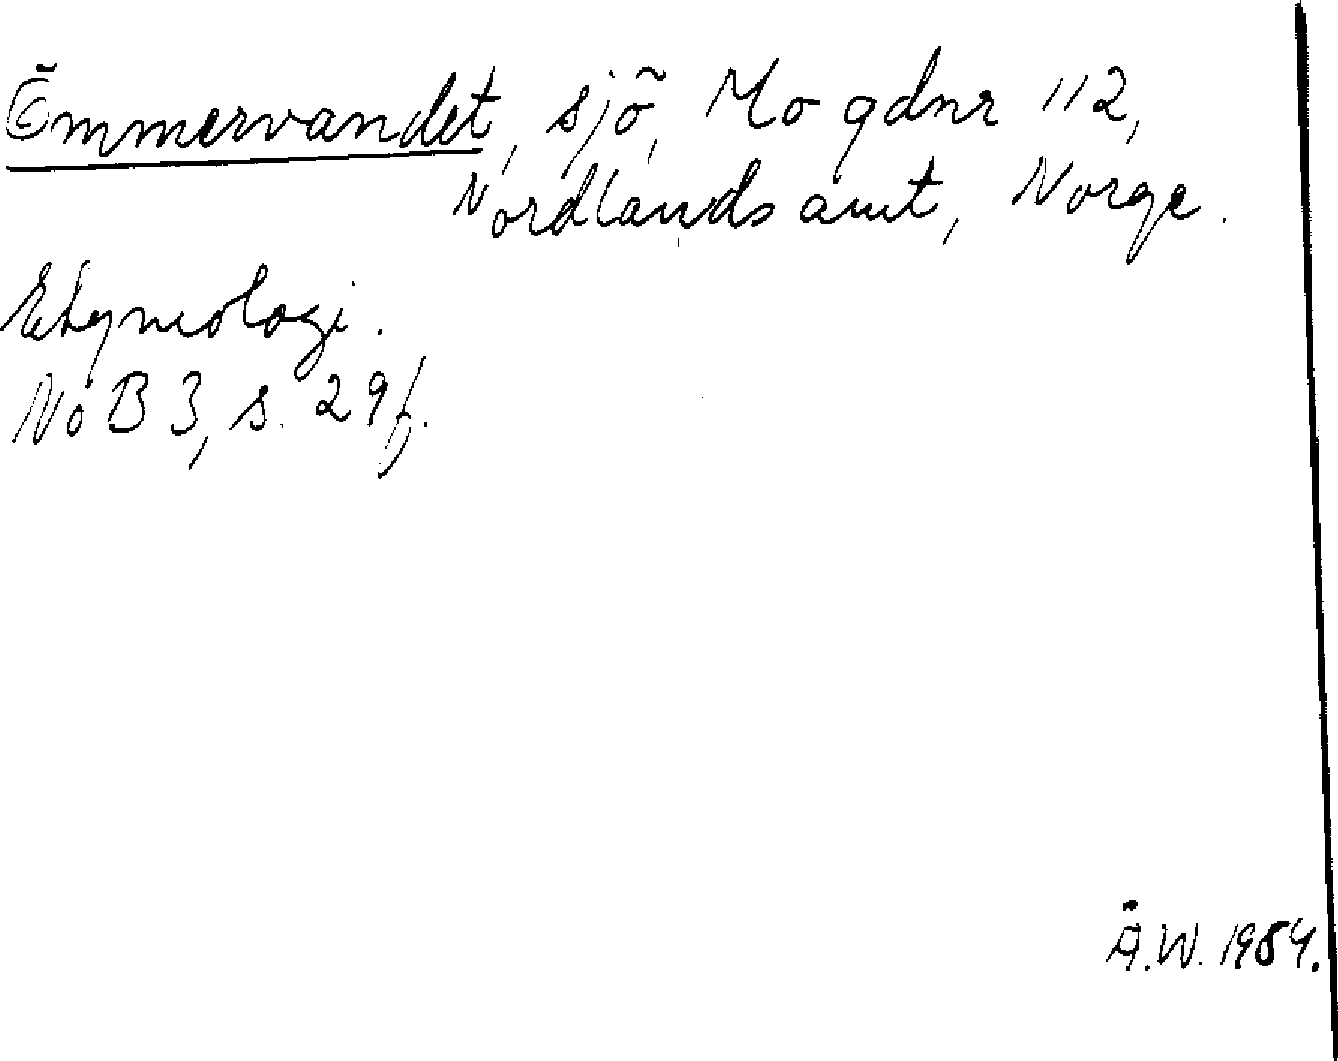 Ömmervandet, sjö, Mo gdnr 112,
Nordlands amt, Norge.
Etymologi.
NoB 3, s. 29 f.
Ä.W. 1984.